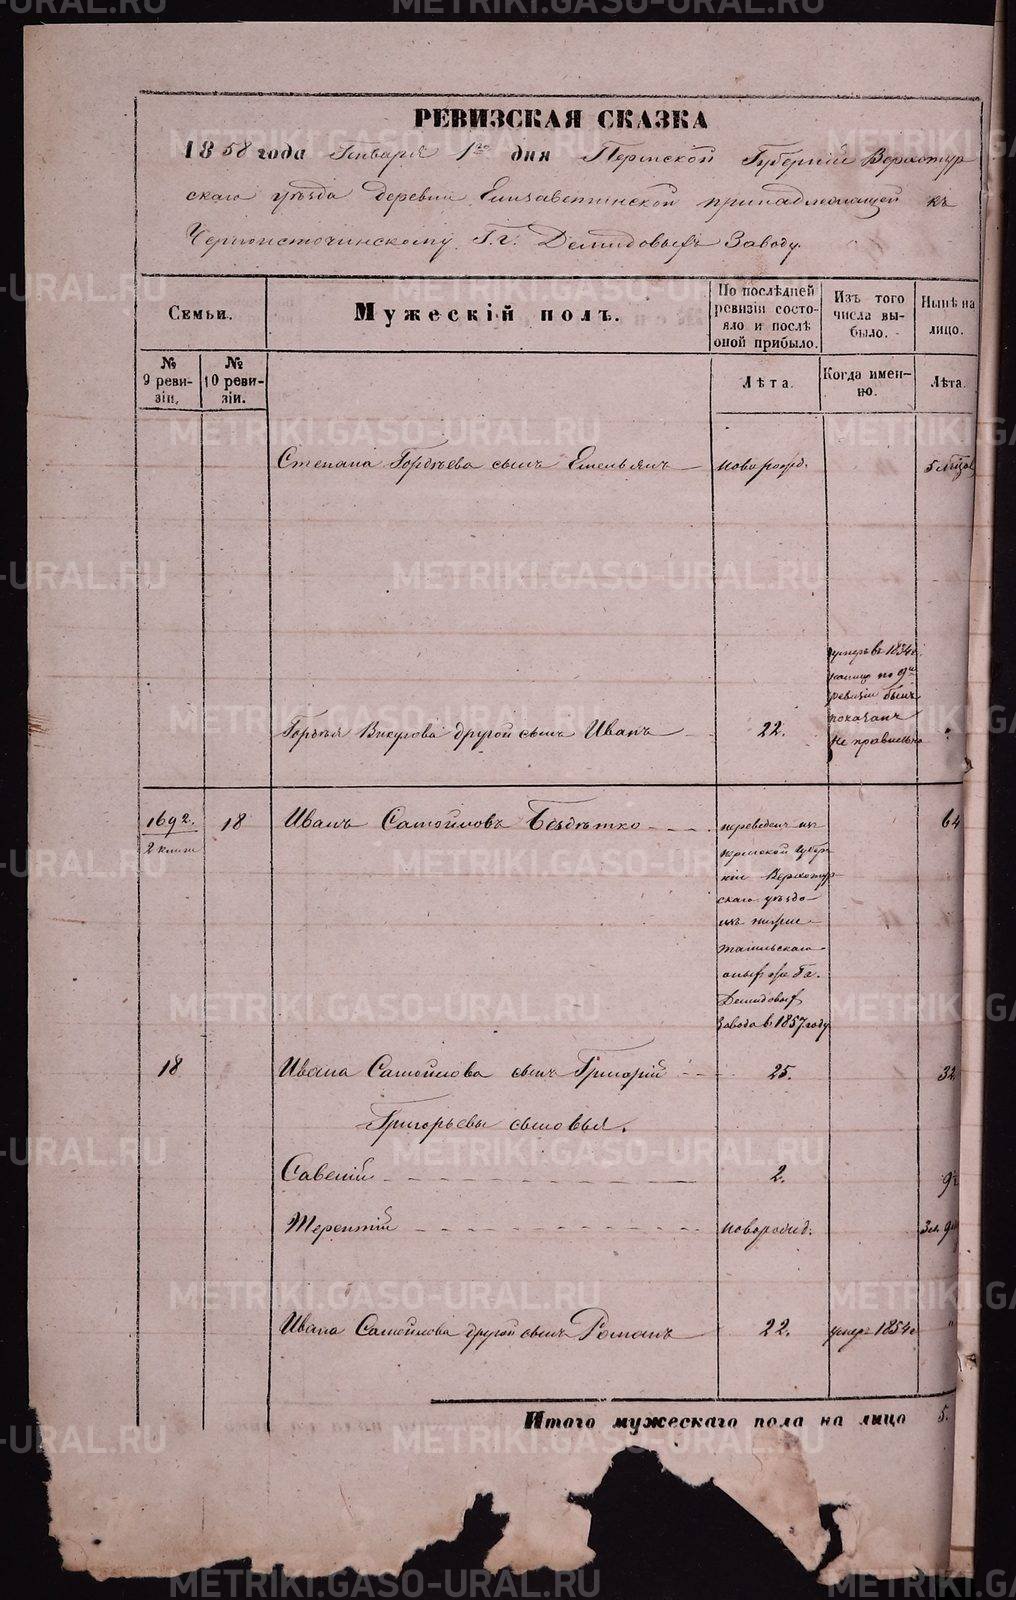 РЕВИЗСКАЯ СКАЗКА
1858 года Января 1го дня Пермской Губерніи Верхотур
скаго уѣзда деревни Елизаветинской принадлежащей къ
Черноисточинскому Г.г. Демидовыхъ Заводу.
Семьи.
Мужескій полъ.
По послѣдней
ревизіи состо-
яло и послѣ
оной прибыло.
Изъ того
числа вы-
было.
Нынѣ на
лицо.
№
9 реви-
зіи.
№
10 реви-
зіи.
Лѣта.
Когда имен-
но.
Лѣта.
Степана Гордѣева сынъ Емельянъ новорожд. 5 мѣсяц
умеръ въ 1834 г.
по 9й
ревизіи былъ
показанъ
не правильно
Гордѣя Викулова другой сынъ Иванъ 22.
1692. 18 Иванъ Самойловъ Бездѣтко 64
2 книж
переведенъ изъ
Пермской губер
ніи Верхотур
скаго уѣзда
изъ нижне
тагильскаго
Демидовых
завода в 1857 году
18 Ивана Самойлова сынъ Григорій 25. 32
Григорьевы сыновья.
Савелій 2. 9
Терентій новорожд.
Ивана Самойлова другой сынъ Романъ 22. умеръ 1854 г
Итого мужескаго пола на лицо 5.
METRIKI.GASO-URAL.RU